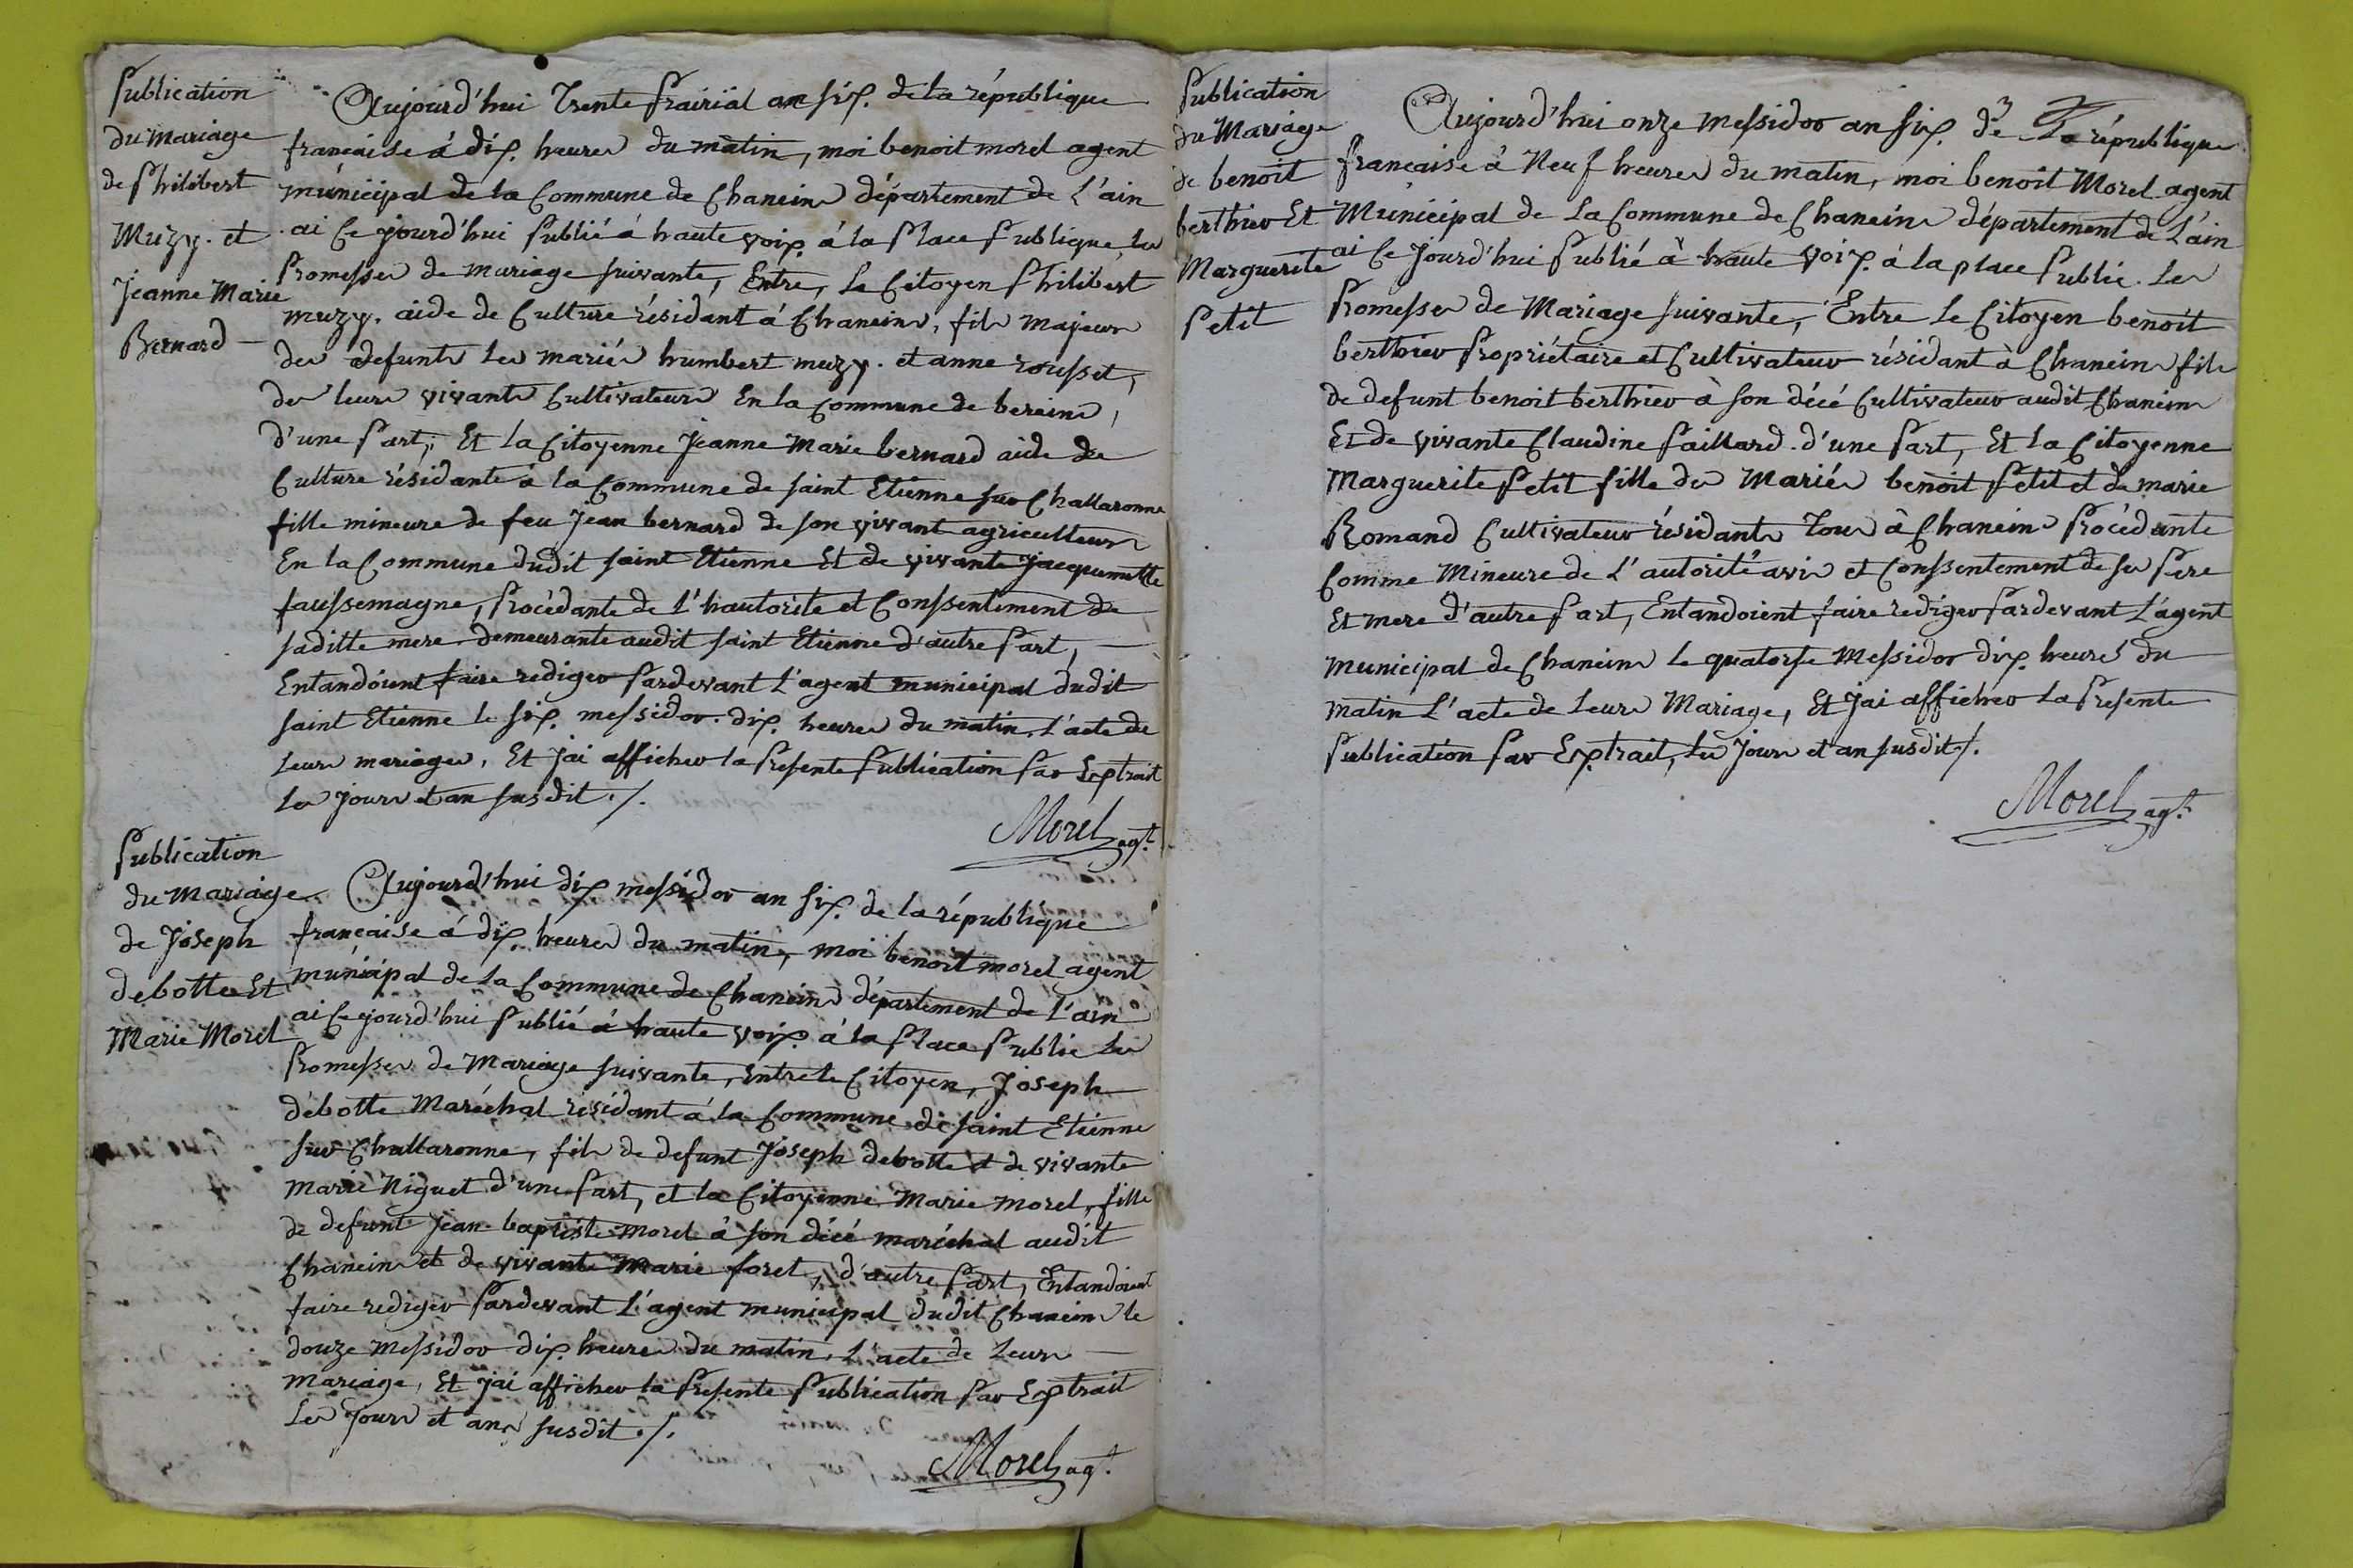 Publication
du Mariage
de Philibert
Muzy. et
Jeanne Marie
Bernard
Aujourd'hui Trente Prairial an six. de la république
française à dix. heures du matin, moi benoit morel agent
municipal de la Commune de Chaneins département de L'ain
ai Ce jourd'hui Publié à haute voix. à la Place Publique les
Promesses de mariage suivante, Entre, Le Citoyen Philibert
muzy. aide de Culture résidant à Chaneins, fils majeur
des defunts les mariés humbert muzy. et anne rousset,
de leurs vivants Cultivateurs En la Commune de bereins,
d'une Part, Et la Citoyenne Jeanne Marie bernard aide de
Culture résidante à la Commune de saint Etienne sur Challaronne
fille mineure de feu Jean bernard de son vivant agriculteur
En la Commune dudit saint Etienne Et de vivante Jacquemette
faussemagne, Procédante de L'hautorité et Conssentiment de
saditte mere demeurante audit saint Etienne d'autre Part,
Entandoient faire rediger Pardevant L'agent municipal dudit
saint Etienne le six. messidor. dix. heures du matin. L'acte de
Leurs mariages, Et jai afficher la Presente Publication Par Extrait
Les jours et an susdit ./.
Morel agt.
Publication
du Mariage
de Joseph
debotte Et
Marie Morel
Aujourd'hui dix messidor an six. de la république
française à dix. heures du matin, moi benoit morel agent
municipal de La Commune de Chaneins département de L'ain
ai Ce jourd'hui Publié à haute voix. à la Place Public les
Promesses de Mariage suivante, Entre le Citoyen, Joseph
débotte Maréchal résidant à la Commune de saint Etienne
sur Challaronne, fils de defunt Joseph debotte et de vivante
Marie Niguet d'une Part, et la Citoyenne Marie Morel, fille
de defunt Jean-baptiste Morel à son décé maréchal audit
Chaneins et de vivante Marie foret, d'autre Part, Entandoient
faire rediger Pardevant L'agent municipal dudit Chaneins le
douze Messidor dix. heures du matin. L'acte de Leurs
Mariage, Et jai afficher la Presente Publication Par Extrait
Les Jours et ans susdit ./.
Morel agt.
Publication
du Mariage
de benoit
berthier Et
Marguerite
Petit
Aujourd'hui onze Messidor an six. de La république
française à Neuf heures du matin, moi benoit Morel agent
Municipal de La Commune de Chaneins département de L'ain
ai Ce Jourd'hui Publié à haute voix. à la place Public. Les
Promesses de Mariage suivante, Entre Le Citoyen benoit
berthier Propriétaire et Cultivateur résidant à Chaneins fils
de defunt benoit berthier à son décé Cultivateur audit Chaneins
Et de vivante Claudine Paillard. d'une Part, Et La Citoyenne
Marguerite Petit fille des Mariés benoit Petit et de marie
Romand Cultivateur résidants Tous à Chaneins Procédante
Comme Mineure de L'autorité avis et Conssentement de ses Pere
Et mere d'autre Part, Entandoient faire rediger Pardevant L'agent
municipal de Chaneins Le quatorse Messidor dix. heures du
matin L'acte de Leurs Mariage, Et Jai afficher La Presente
Publication Par Extrait, Les Jours et an susdit ./.
Morel agt.